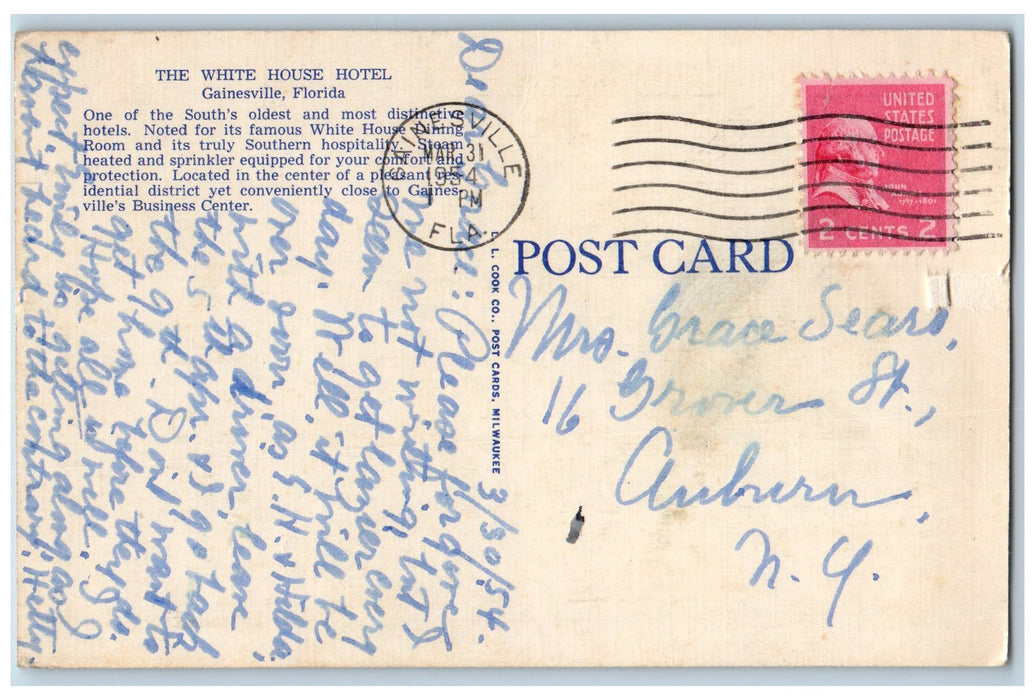 THE WHITE HOUSE HOTEL
Gainesville, Florida
One of the South's oldest and most distinctive
hotels. Noted for its famous White House Dining
Room and its truly Southern hospitality. Steam
heated and sprinkler equipped for your comfort and
protection. Located in the center of a pleasant res-
idential district yet conveniently close to Gaines-
ville's Business Center.
GAINESVILLE
MAR 31
1954
1 PM
FLA.
UNITED
STATES
POSTAGE
JOHN
1797-1801
2 CENTS 2
POST CARD
E. L. COOK CO., POST CARDS, MILWAUKEE
Mrs. Grace Sears,
16 Grover St.,
Auburn,
N. Y.
3/30/54.
Dear : Please forgive
me not writing, but I
seem to get lazier every
day. Well, it will be
over soon, as E. H. & Hilda
with a driver, leave
the 5th Apr. & I go back
the 9th. Do want to
get home before they do.
Hope all is well. I
expect Emily is getting along, as I
haven't heard to the contrary. Hetty.